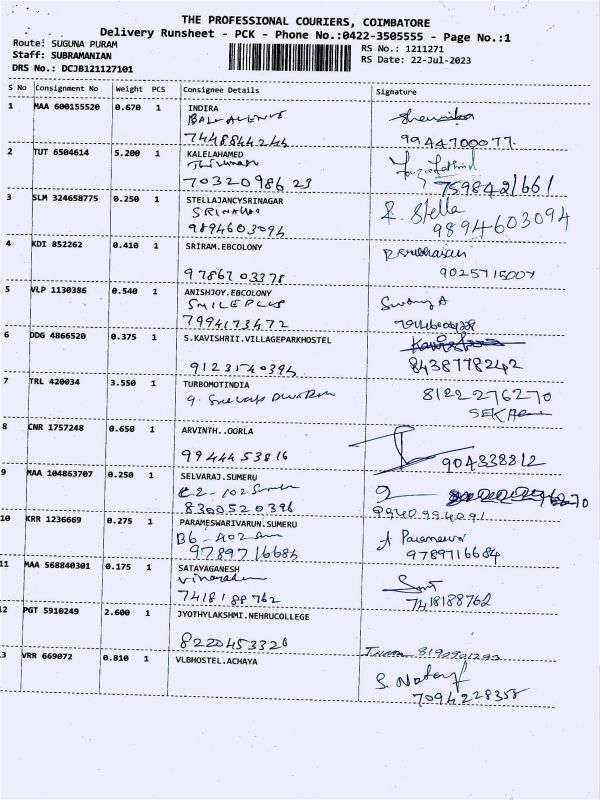 THE PROFESSIONAL COURIERS, COIMBATORE
Delivery Runsheet - PCK - Phone No.:0422-3505555 - Page No.:1
Route: SUGUNA PURAM
RS No.: 1211271
Staff: SUBRAMANIAN
RS Date: 22-Jul-2023
DRS No.: DCJB121127101
S No Consignment No Weight PCS Consignee Details Signature
1 MAA 600155520 0.670 1 INDIRA
7448844244 9944700077.
2 TUT 6504614 5.200 1 KALELAHAMED
7032098623 7598421661
3 SLM 324658775 0.250 1 STELLAJANCYSRINAGAR
R. Stella
9894603094 9894603094
4 KDI 852262 0.410 1 SRIRAM.EBCOLONY
9786703378 9025715007
5 VLP 1130386 0.540 1 ANISHJOY.EBCOLONY
SMILE PLUS
7994173472
6 DDG 4866520 0.375 1 S.KAVISHRII.VILLAGEPARKHOSTEL
9123540394 8438778242
7 TRL 420034 3.550 1 TURBOMOTINDIA
8122276270
SEKAR
8 CNR 1757248 0.650 1 ARVINTH..OORLA
9944453816 904338812
9 MAA 104863707 0.250 1 SELVARAJ.SUMERU
C2-102
8300520396 9940994091
10 KRR 1236669 0.275 1 PARAMESWARIVARUN.SUMERU
B6-402
9789716684 9789716684
11 MAA 568840301 0.175 1 SATAYAGANESH
7418188762 7418188762
12 PGT 5910249 2.600 1 JYOTHYLAKSHMI.NEHRUCOLLEGE
8220453320
3 VRR 669072 0.810 1 VLBHOSTEL.ACHAYA
7094228358